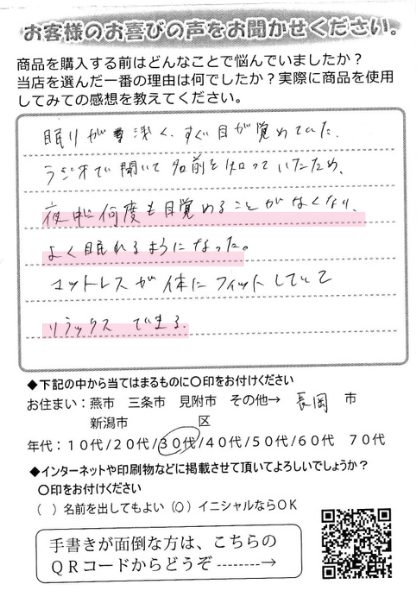 お客様のお喜びの声をお聞かせください。
商品を購入する前はどんなことで悩んでいましたか？
当店を選んだ一番の理由は何でしたか？実際に商品を使用
してみての感想を教えてください。
眠りが浅く、すぐ目が覚めていた。
ラジオで聞いて名前を知っていたため。
夜中に何度も目覚めることがなくなり、
よく眠れるようになった。
マットレスが体にフィットしていて
リラックスできる。
◆下記の中から当てはまるものに〇印をお付けください
お住まい：燕市　三条市　見附市　その他→　長岡　市
新潟市　　　　　区
年代：１０代/２０代/３０代/４０代/５０代/６０代　７０代
◆インターネットや印刷物などに掲載させて頂いてよろしいでしょうか？
〇印をお付けください
（　）名前を出してもよい（〇）イニシャルならＯＫ
手書きが面倒な方は、こちらの
ＱＲコードからどうぞ--------→